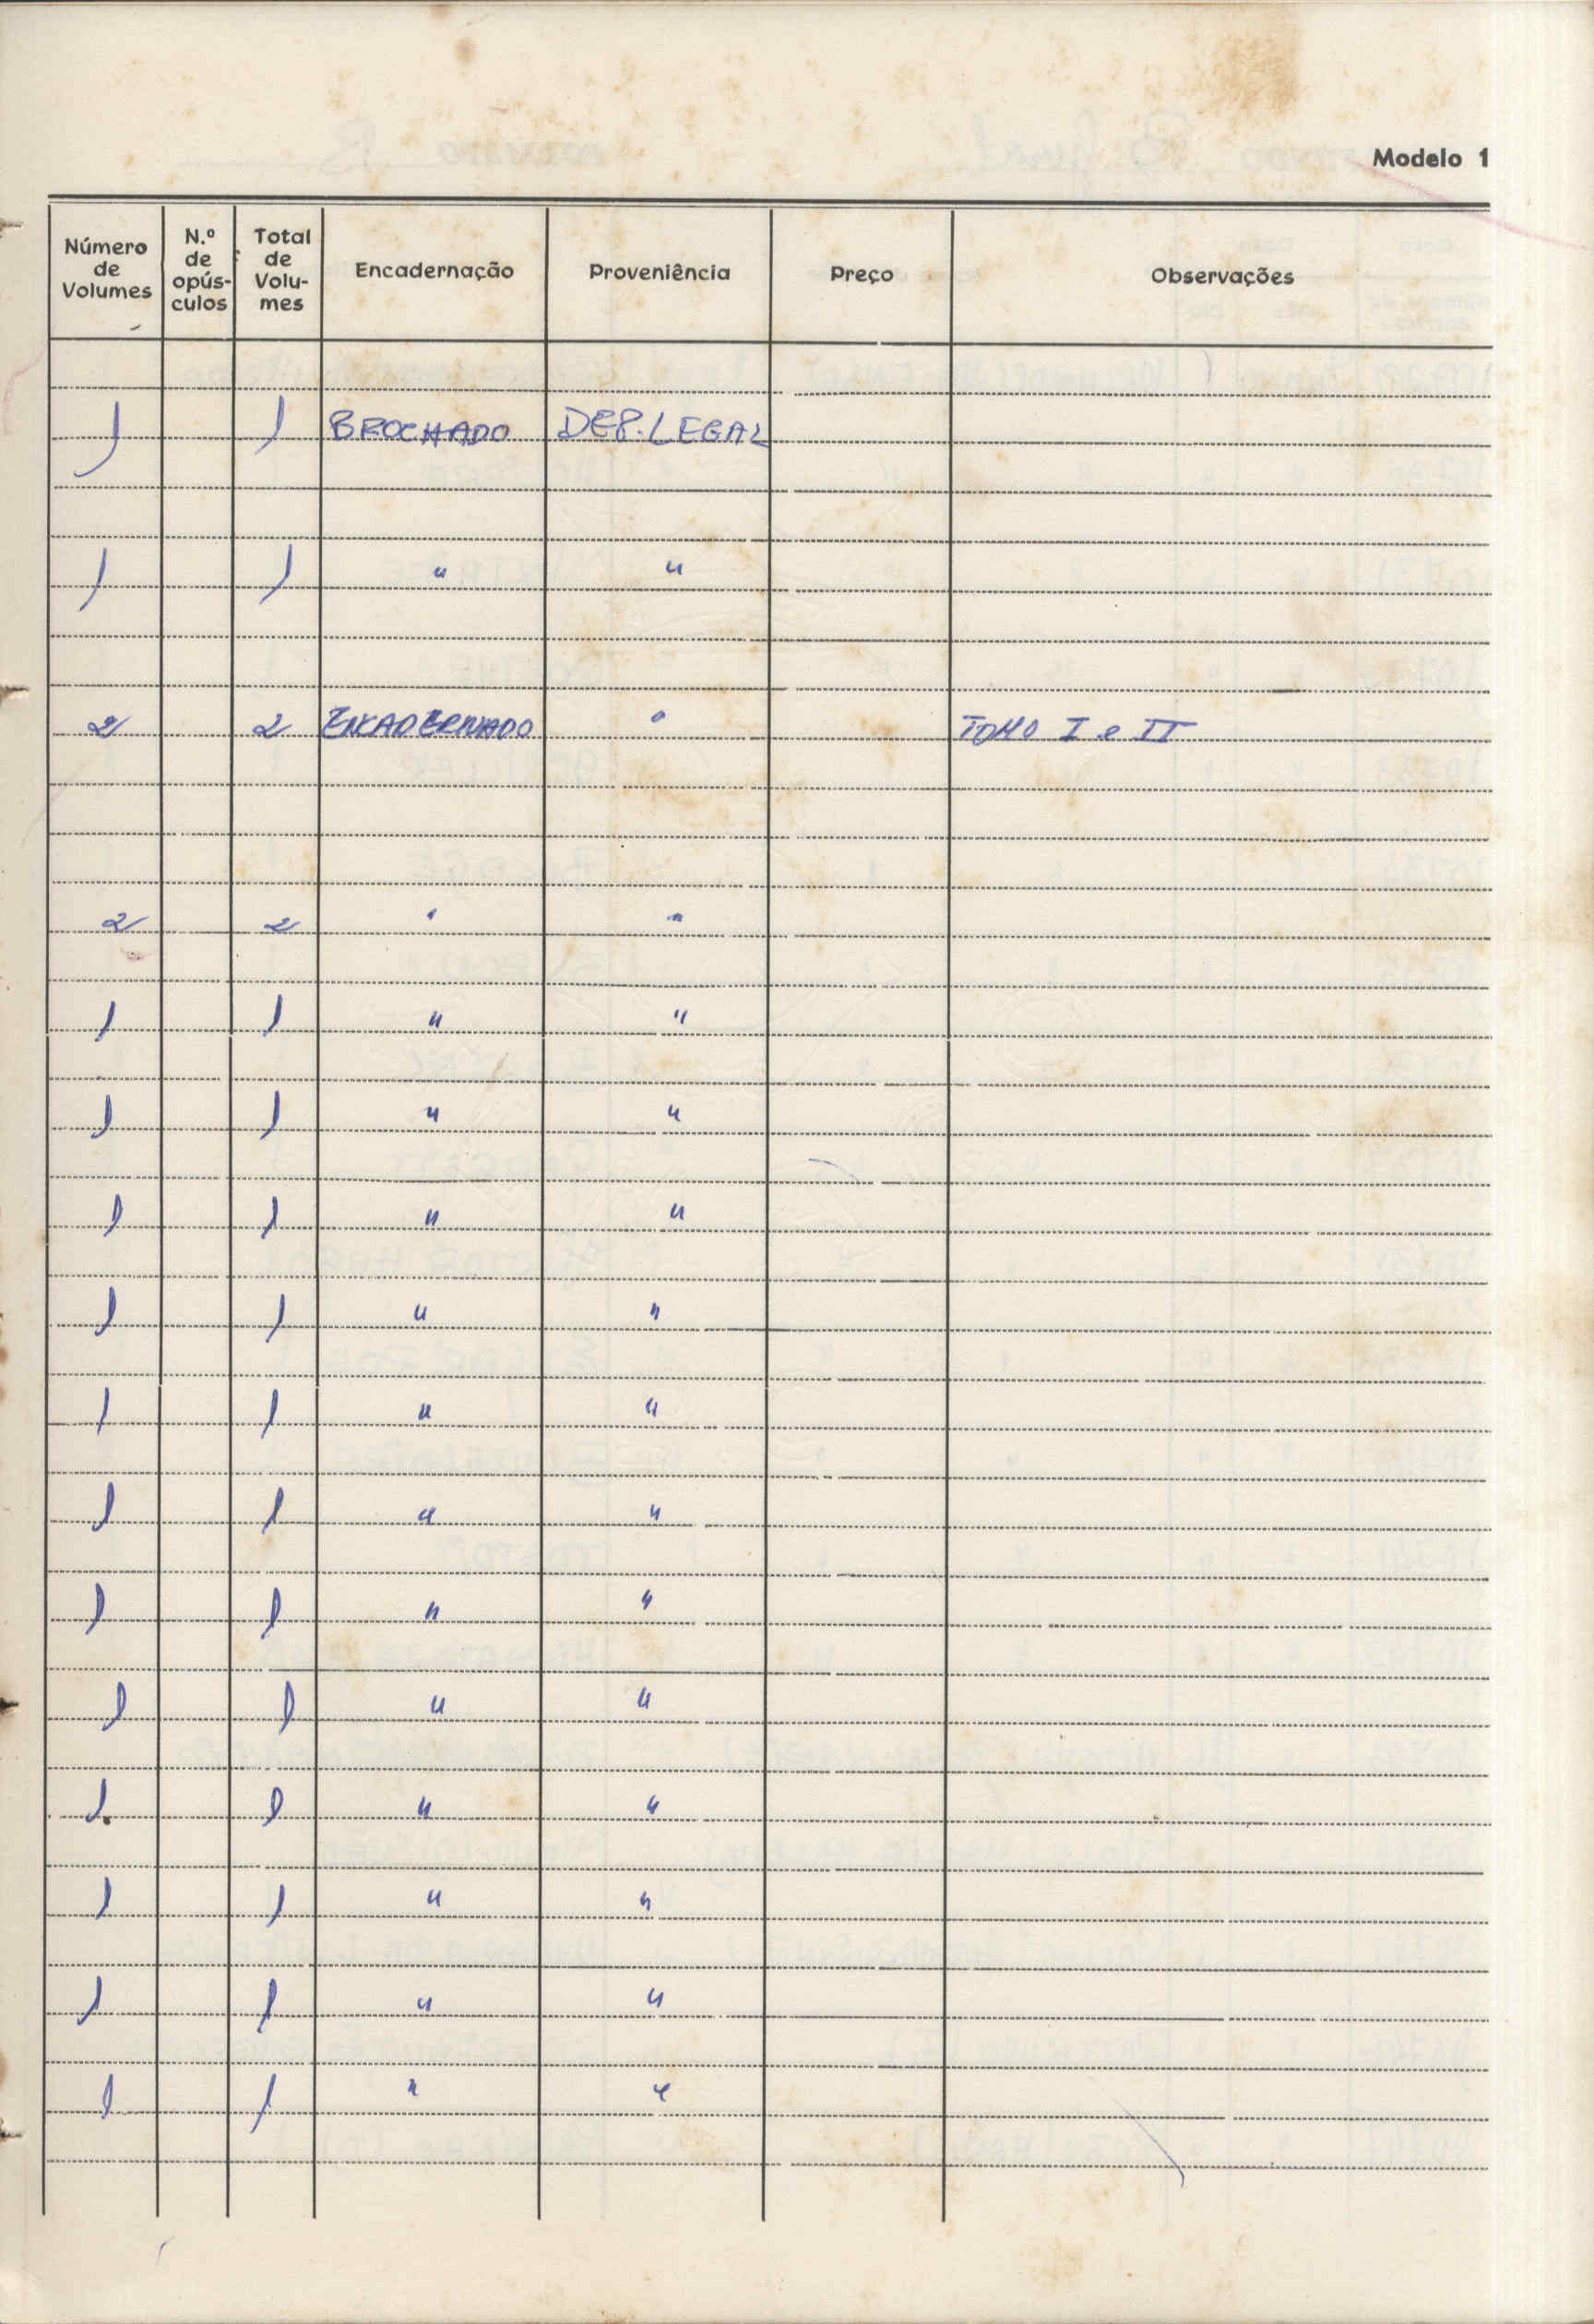 Modelo 1
Número de Volumes N.º de opús- culos Total de Volu- mes Encadernação Proveniência Preço Observações
1 1 BROCHADO DEP. LEGAL
1 1 " "
2 2 ENCADERNADO " TOMO I e II
2 2 " "
1 1 " "
1 1 " "
1 1 " "
1 1 " "
1 1 " "
1 1 " "
1 1 " "
1 1 " "
1 1 " "
1 1 " "
1 1 " "
1 1 " "